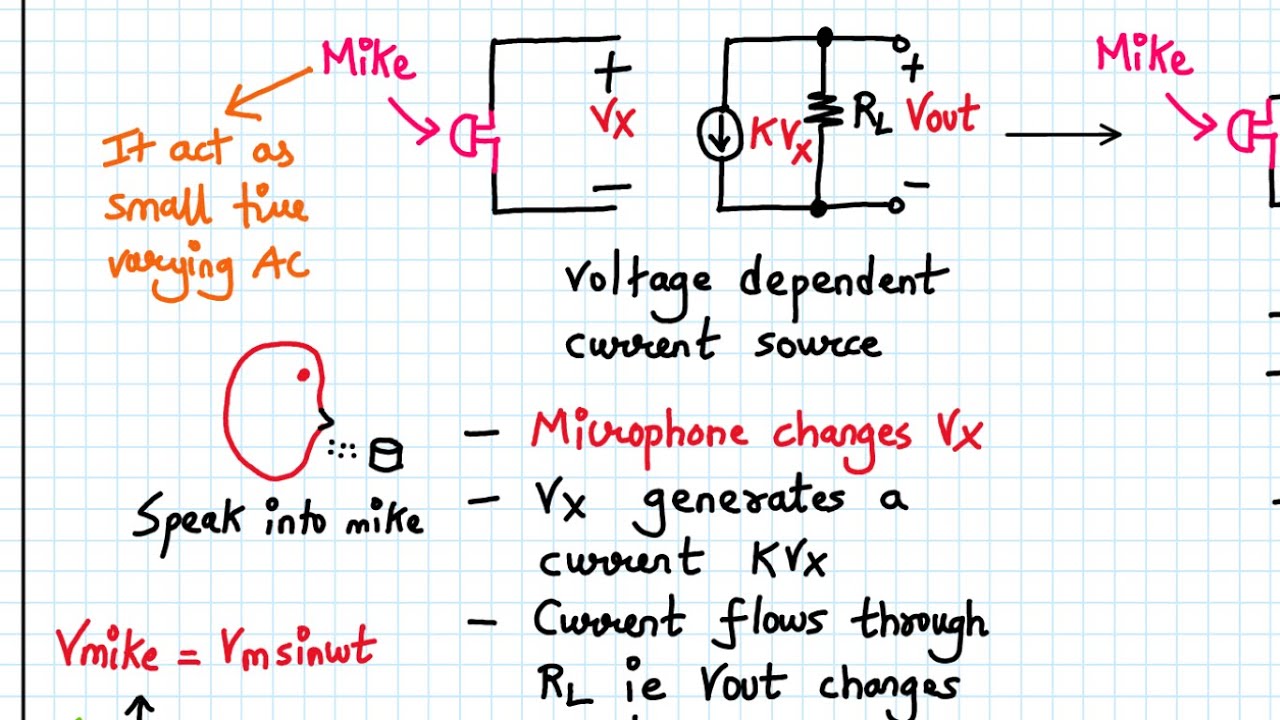 Mike
It act as
small time
varying AC
+
Vx
−
KVx
RL
+
Vout
−
Mike
Voltage dependent
current source
Speak into mike
− Microphone changes Vx
− Vx generates a
current KVx
− Current flows through
RL ie Vout changes
Vmike = Vmsinwt